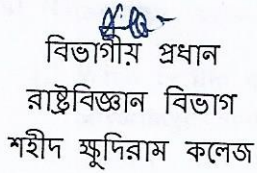 বিভাগীয় প্রধান
রাষ্ট্রবিজ্ঞান বিভাগ
শহীদ ক্ষুদিরাম কলেজ